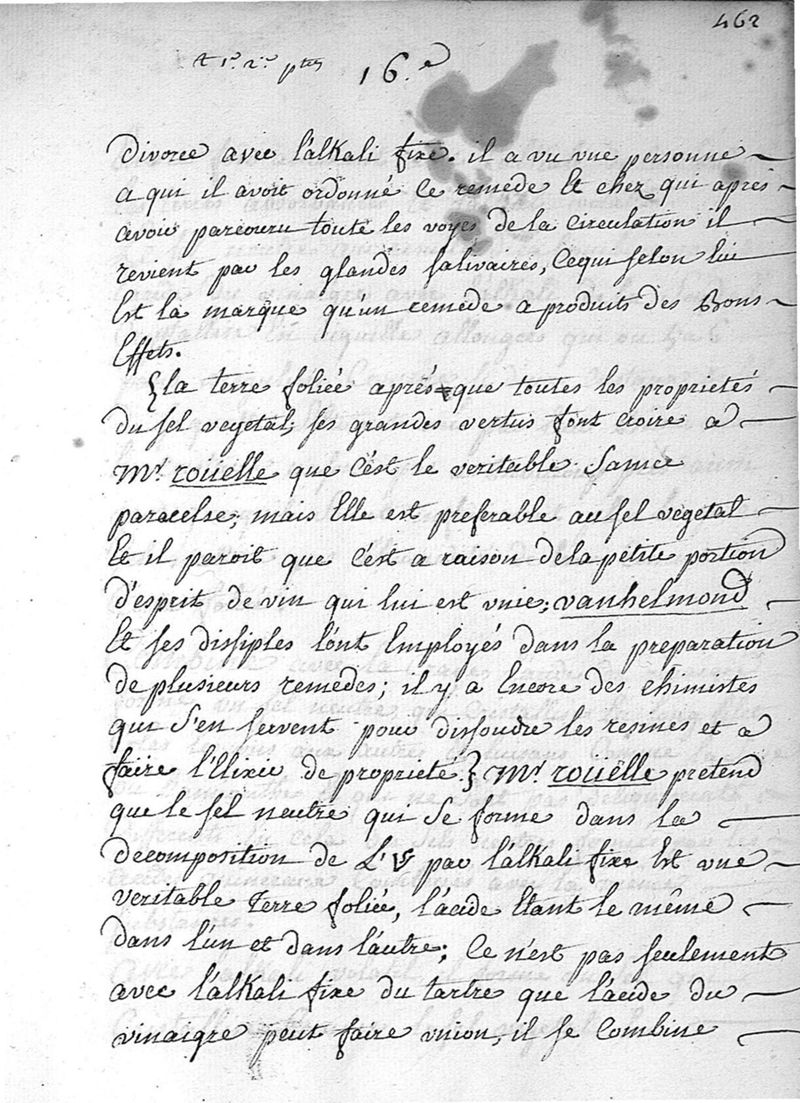 462
et 1re 2e ptes 16.e
divorce avec l'alkali fixe. il a vu vne personne
a qui il avoit ordonné ce remede Et chez qui aprés
avoir parcouru toute les voyes de la circulation il
revient par les glandes salivaires, Cequi selon lui
Est la marque qu'un remede a produits des Bons
Effets.
{la terre foliée aprés que toutes les proprietés
du sel vegetal; ses grandes vertus font croire a
Mr. roüelle que c'est le veritable Samec
paracelse; mais Elle est preferable au sel vegetal
Et il paroit que c'est a raison dela petite portion
d'esprit de vin qui lui est vnie; vanhelmond
Et ses dissiples l'ont Employés dans la preparation
de plusieurs remedes; il y a Encore des chimistes
qui s'en servent pour dissoudre les resines et a
faire l'Elixir de proprieté.} Mr. roüelle pretend
que le sel neutre qui se forme dans la
decomposition de L' par l'alkali fixe Est vne
veritable Terre foliée, l'acide Etant le même
dans l'un et dans l'autre; Ce n'est pas seulement
avec l'alkali fixe du tartre que l'acide du
vinaigre peut faire vnion, il se Combine